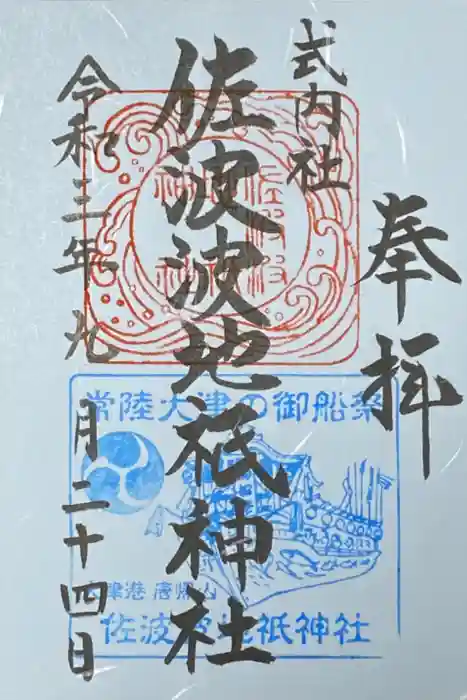 奉拝
式内社
佐波波地祇神社
令和三年九月二十四日
常陸大津の御船祭
津港 唐帰山
佐波波地祇神社